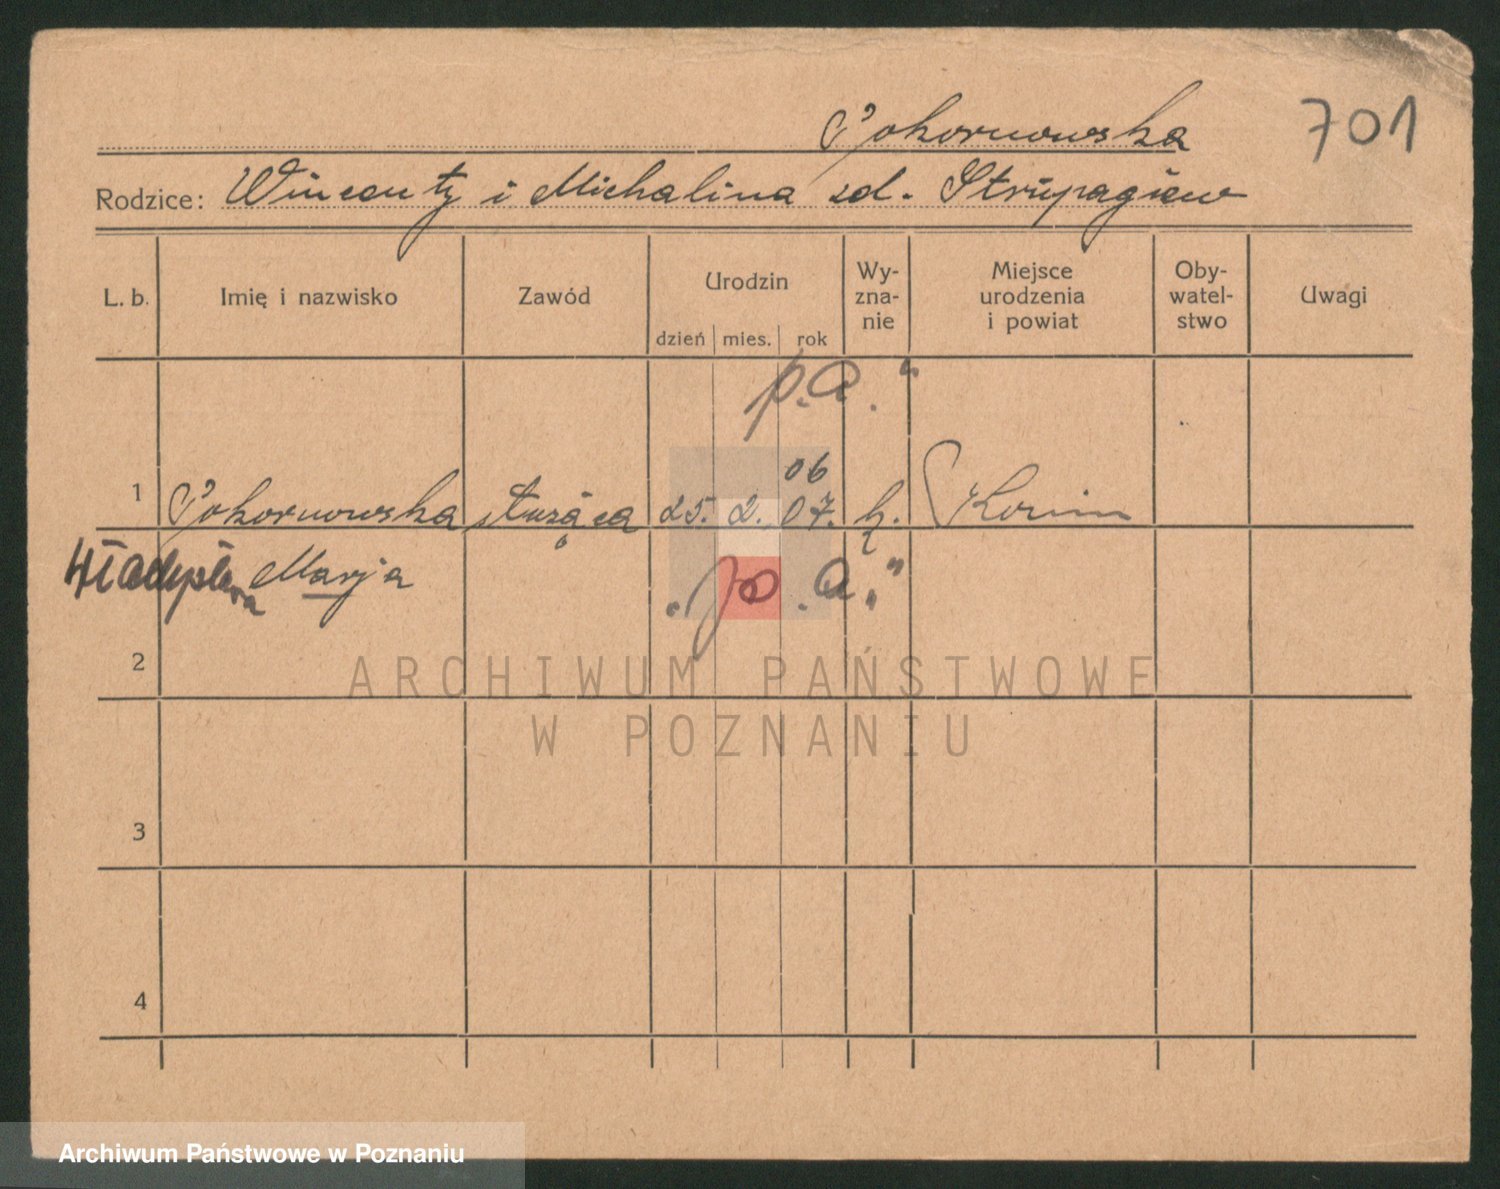 701
Pokornowska
Rodzice: Wincenty i Michalina zd.
L. b.
Imię i nazwisko
Zawód
Urodzin
dzień
mies.
rok
Wy-
zna-
nie
Miejsce
urodzenia
i powiat
Oby-
watel-
stwo
Uwagi
p.a."
06
1 Pokornowska służąca 25. 2. 07. k.
Władysława Marja
„p.a."
2
3
4
ARCHIWUM PAŃSTWOWE
W POZNANIU
Archiwum Państwowe w Poznaniu